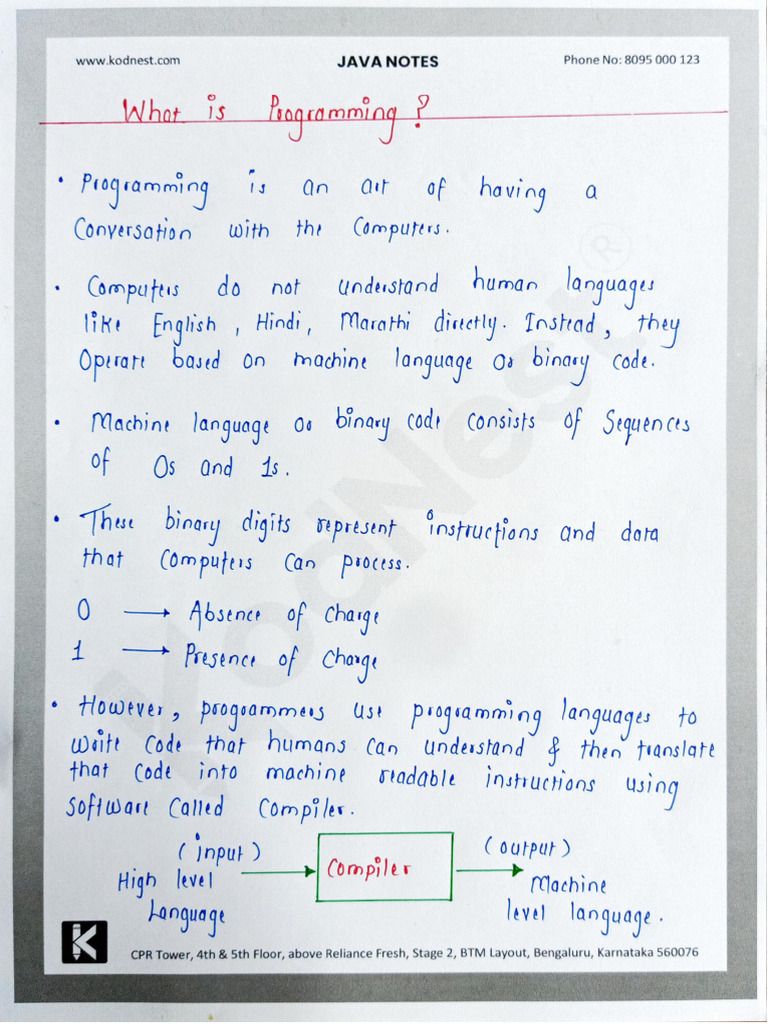 www.kodnest.com JAVA NOTES Phone No: 8095 000 123
What is Programming?
• Programming is an art of having a
Conversation with the Computers.
• Computers do not understand human languages
like English, Hindi, Marathi directly. Instead, they
Operate based on machine language or binary code.
• Machine language or binary code consists of Sequences
of 0s and 1s.
• These binary digits represent instructions and data
that Computers Can process.
0 → Absence of Charge
1 → Presence of Charge
• However, programmers use programming languages to
write Code that humans can understand & then translate
that code into machine readable instructions using
Software Called Compiler.
(input) (output)
High level Compiler Machine
Language level language.
CPR Tower, 4th & 5th Floor, above Reliance Fresh, Stage 2, BTM Layout, Bengaluru, Karnataka 560076
KodNest ®